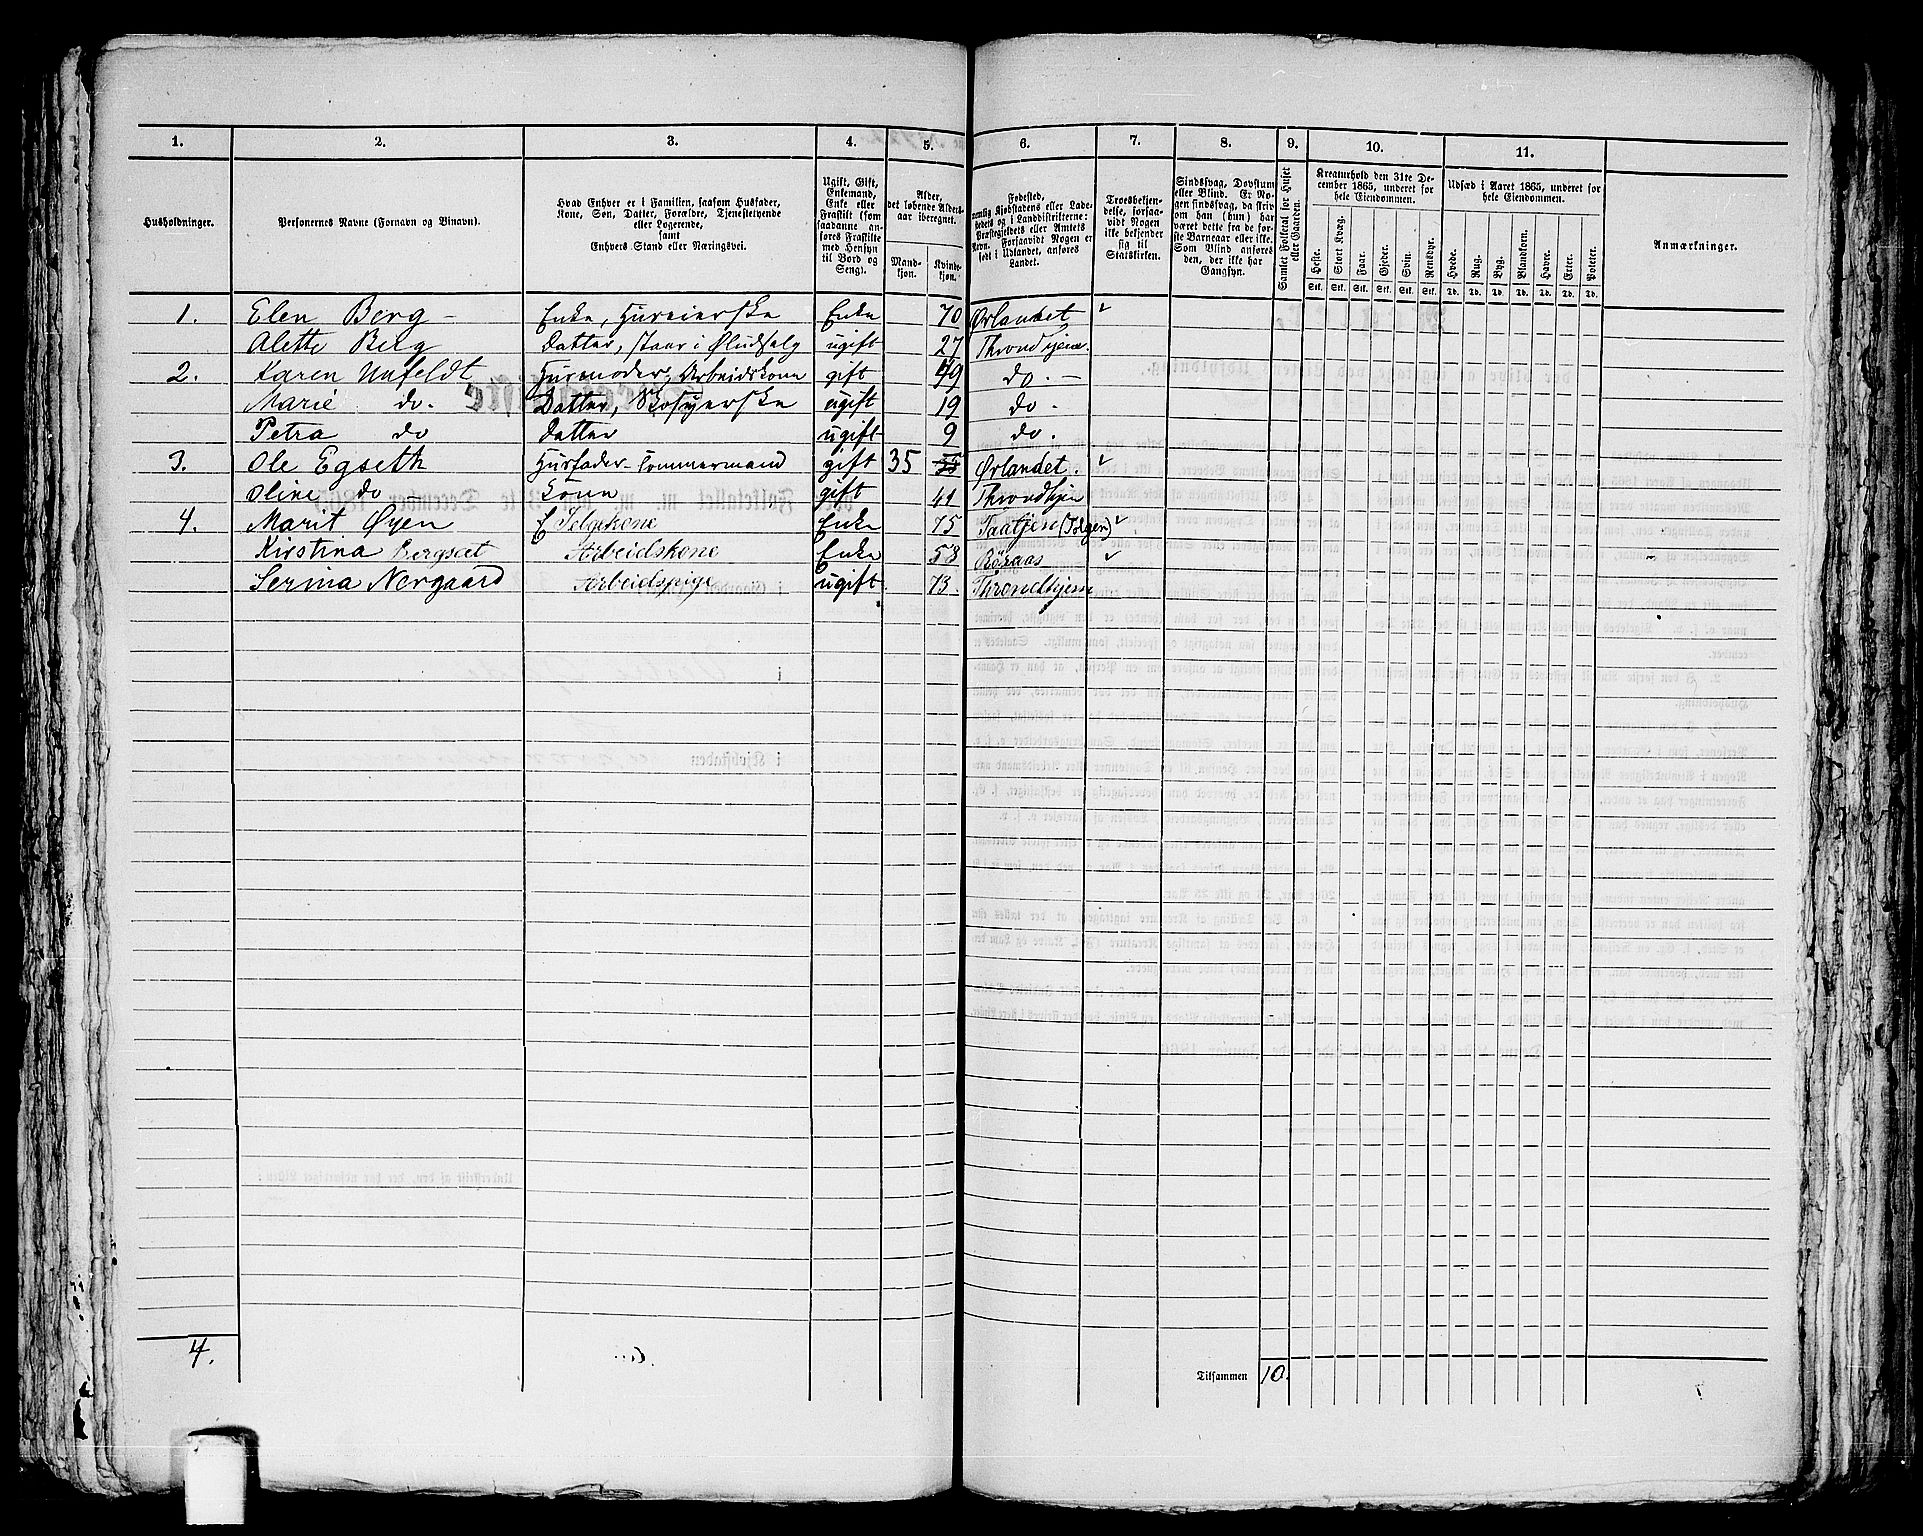 1. 2. 3. 4. 5. 6. 7. 8. 9. 10. 11.
Husholdninger.
Personernes Navne (Fornavn og Binavn).
Hvad Enhver er i Familien, saasom Husfader,
Kone, Søn, Datter, Forældre, Tjenestetyende
eller Logerende,
samt
Enhvers Stand eller Næringsvei.
Ugift, Gift,
Enkemand,
Enke eller
Fraskilt (som
saadanne an-
føres Fraskilte
med Hensyn
til Bord og
Seng).
Alder,
det løbende Alders-
aar iberegnet.
Mand-
kjøn.
Kvinde-
kjøn.
Fødested,
nemlig Kjøbstadens eller Lade-
stedets og i Landdistrikterne:
Præstegjældets eller Amtets
Navn. Forsaavidt Nogen er
født i Udlandet, anføres
Landet.
Troesbekjen-
delse, forsaa-
vidt Nogen
ikke bekjender
sig til
Statskirken.
Sindssvag, Døvstum
eller Blind. Er No-
gen sindssvag, da skriv
om han (hun) har
været dette fra de før-
ste Barneaar eller ikke.
Som Blind anføres
den, der ikke har
Gangsyn.
Samlet Folketal for Huset
eller Gaarden.
Kreaturhold den 31te De-
cember 1865, underet for
hele Eiendommen.
Heste. Stort Kvæg. Faar. Gjeder. Svin. Rensdyr.
Stk. Stk. Stk. Stk. Stk. Stk.
Udsæd i Aaret 1865, underet for
hele Eiendommen.
Hvede. Rug. Byg. Blandkorn. Havre. Erter. Poteter.
Td. Td. Td. Td. Td. Td. Td.
Anmærkninger.
1. Elen Berg - Enke, Huseierske Enke 70 Ørlandet ✓
Alette Berg Datter, staar i Øludsalg ugift 27 Throndhjem.
2. Karen Unfeldt Husmoder, Arbeidskone gift 49 do. -
Marie do. Datter, Skosyerske ugift 19 do.
Petra do Datter ugift 9 do.
3. Ole Egseth Husfader - Tømmermand gift 35 Ørlandet. ✓
Oline do - Kone gift 41 Throndhjem
4. Marit Øyen Selgekone Enke 75 (Tolgen) ✓
Kirstina Bergset Arbeidskone Enke 58 Røraas ✓
Serina Nergaard Arbeidspige ugift. 73. Throndhjem
4.
Tilsammen 10.